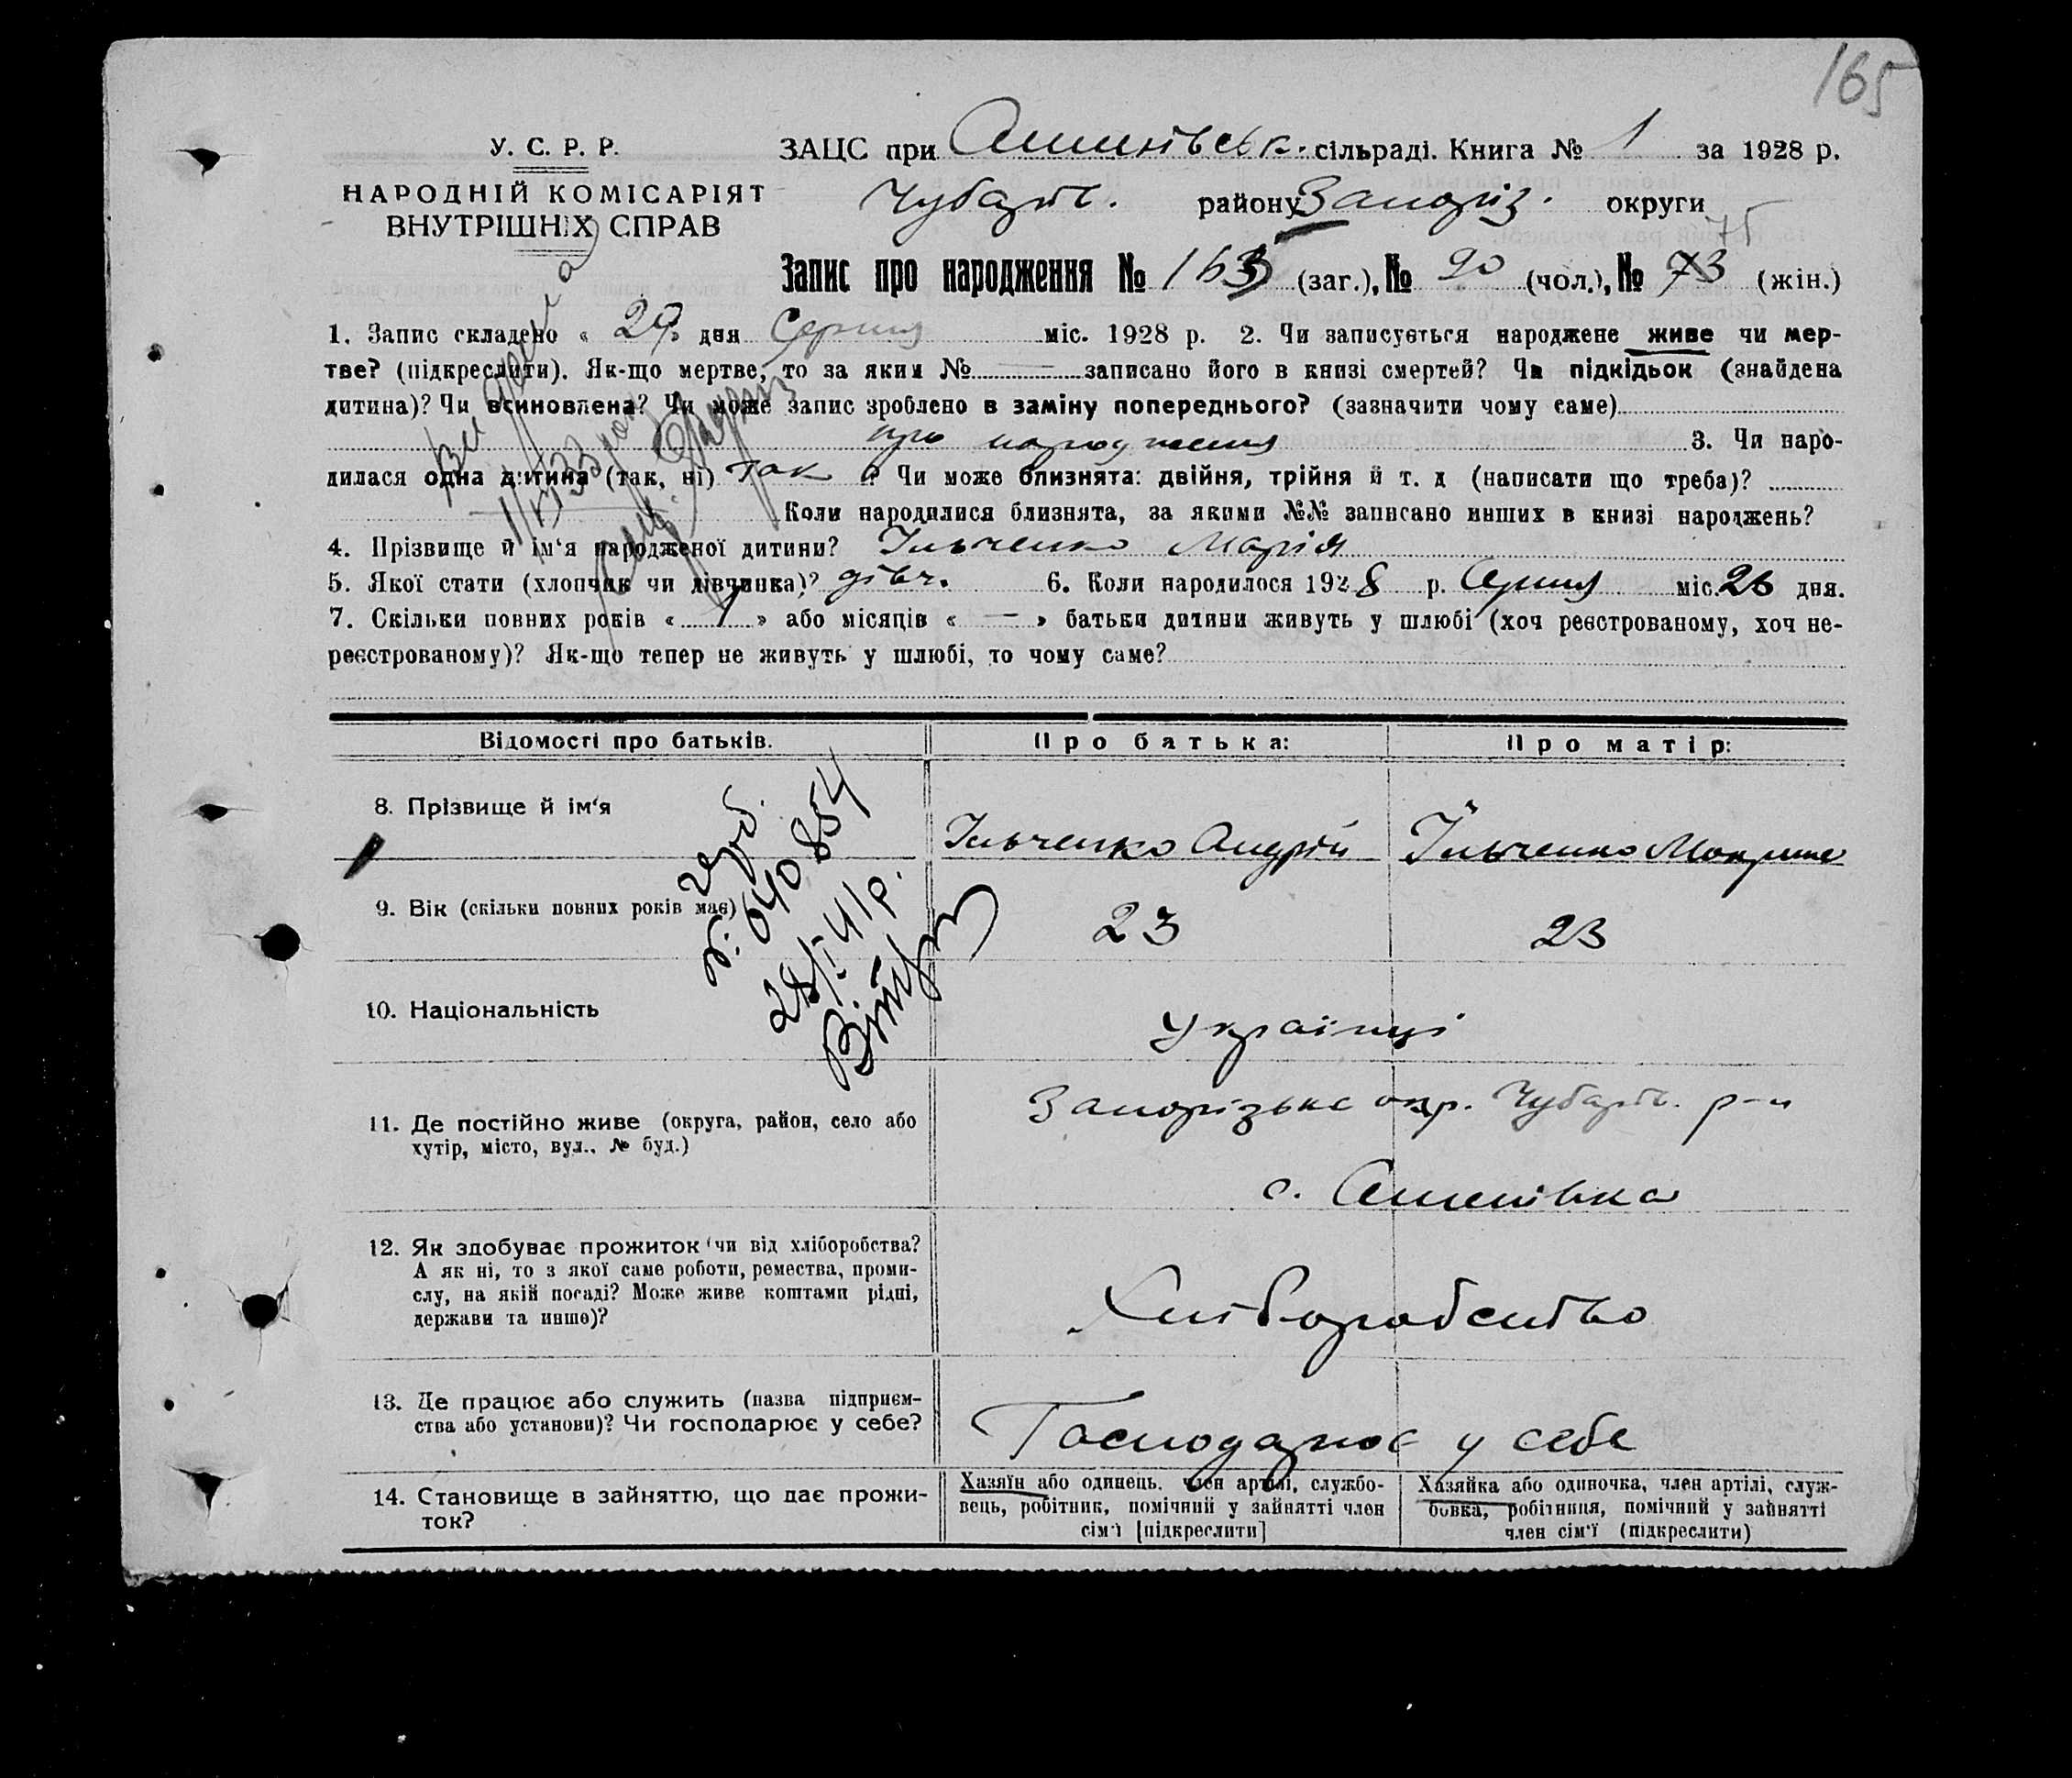 165
У. С. Р. Р.
НАРОДНІЙ КОМІСАРІЯТ
ВНУТРІШНІХ СПРАВ
ЗАЦС при сільраді. Книга № 1 за 1928 р.
Чубарів. району Запоріз. округи
75
Запис про народження № 163 (заг.), № 90 (чол.), № 73 (жін.)
1. Запис складено « 29 » дня Серпня міс. 1928 р. 2. Чи записується народжене живе чи мер-
тве? (підкреслити). Як-що мертве, то за яким № — записано його в книзі смертей? Чи підкідьок (знайдена
дитина)? Чи всиновлена? Чи може запис зроблено в заміну попереднього? (зазначити чому саме)
про народження 3. Чи наро-
дилася одна дитина (так, ні) так ? Чи може близнята: двійня, трійня й т. д (написати що треба)?
Коли народилися близнята, за якими №№ записано инших в книзі народжень?
4. Прізвище й ім‘я народженої дитини? Ільченко Марія
5. Якої стати (хлопчик чи дівчинка)? дівч. 6. Коли народилося 1928 р. Серпня міс. 26 дня.
7. Скільки повних років « 1 » або місяців « — » батьки дитини живуть у шлюбі (хоч реєстрованому, хоч не-
реєстрованому)? Як-що тепер не живуть у шлюбі, то чому саме?
Відомості про батьків. Про батька: Про матір:
8. Прізвище й ім‘я Ільченко Андрій Ільченко
9. Вік (скільки повних років має) 23 23
10. Національність Українці
№ 040854
28/І 41 р.
11. Де постійно живе (округа, район, село або
хутір, місто, вул., № буд.)
Запорізька окр. Чубарів. р-н
с.
12. Як здобуває прожиток чи від хліборобства?
А як ні, то з якої саме роботи, ремества, проми-
слу, на якій посаді? Може живе коштами рідні,
держави та инше)?
Хліборобство
13. Де працює або служить (назва підприєм-
ства або установи)? Чи господарює у себе?
Господарює у себе
14. Становище в зайняттю, що дає прожи-
ток?
Хазяїн або одинець, член артілі, службо-
вець, робітник, помічний у зайнятті член
сім‘ї [підкреслити]
Хазяйка або одиночка, член артілі, служ-
бовка, робітниця, помічний у зайнятті
член сім‘ї (підкреслити)